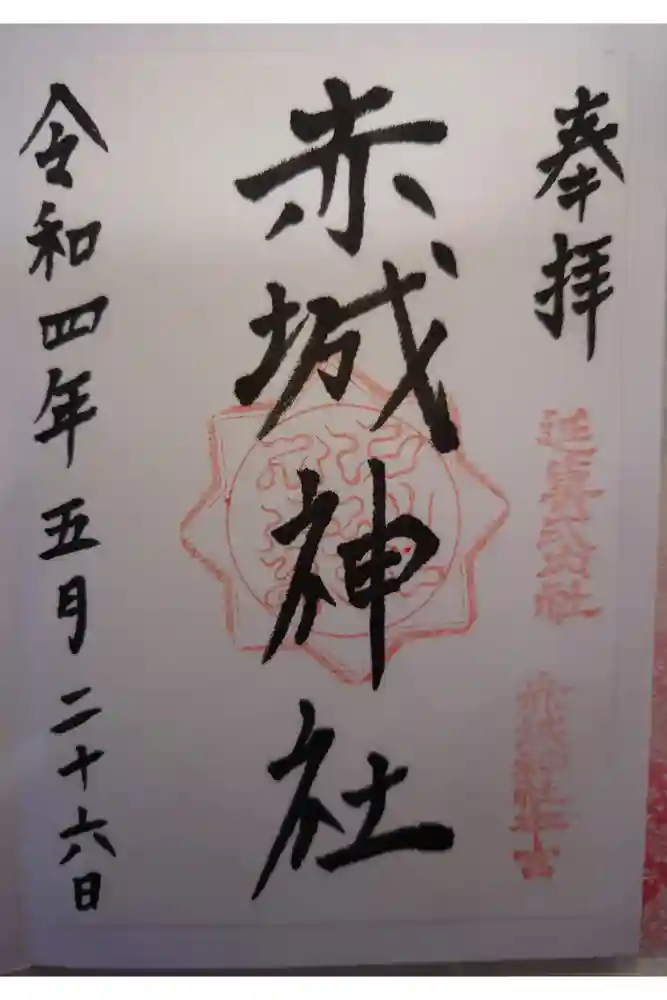 奉拝
延喜式内社
赤城神社
令和四年五月二十六日